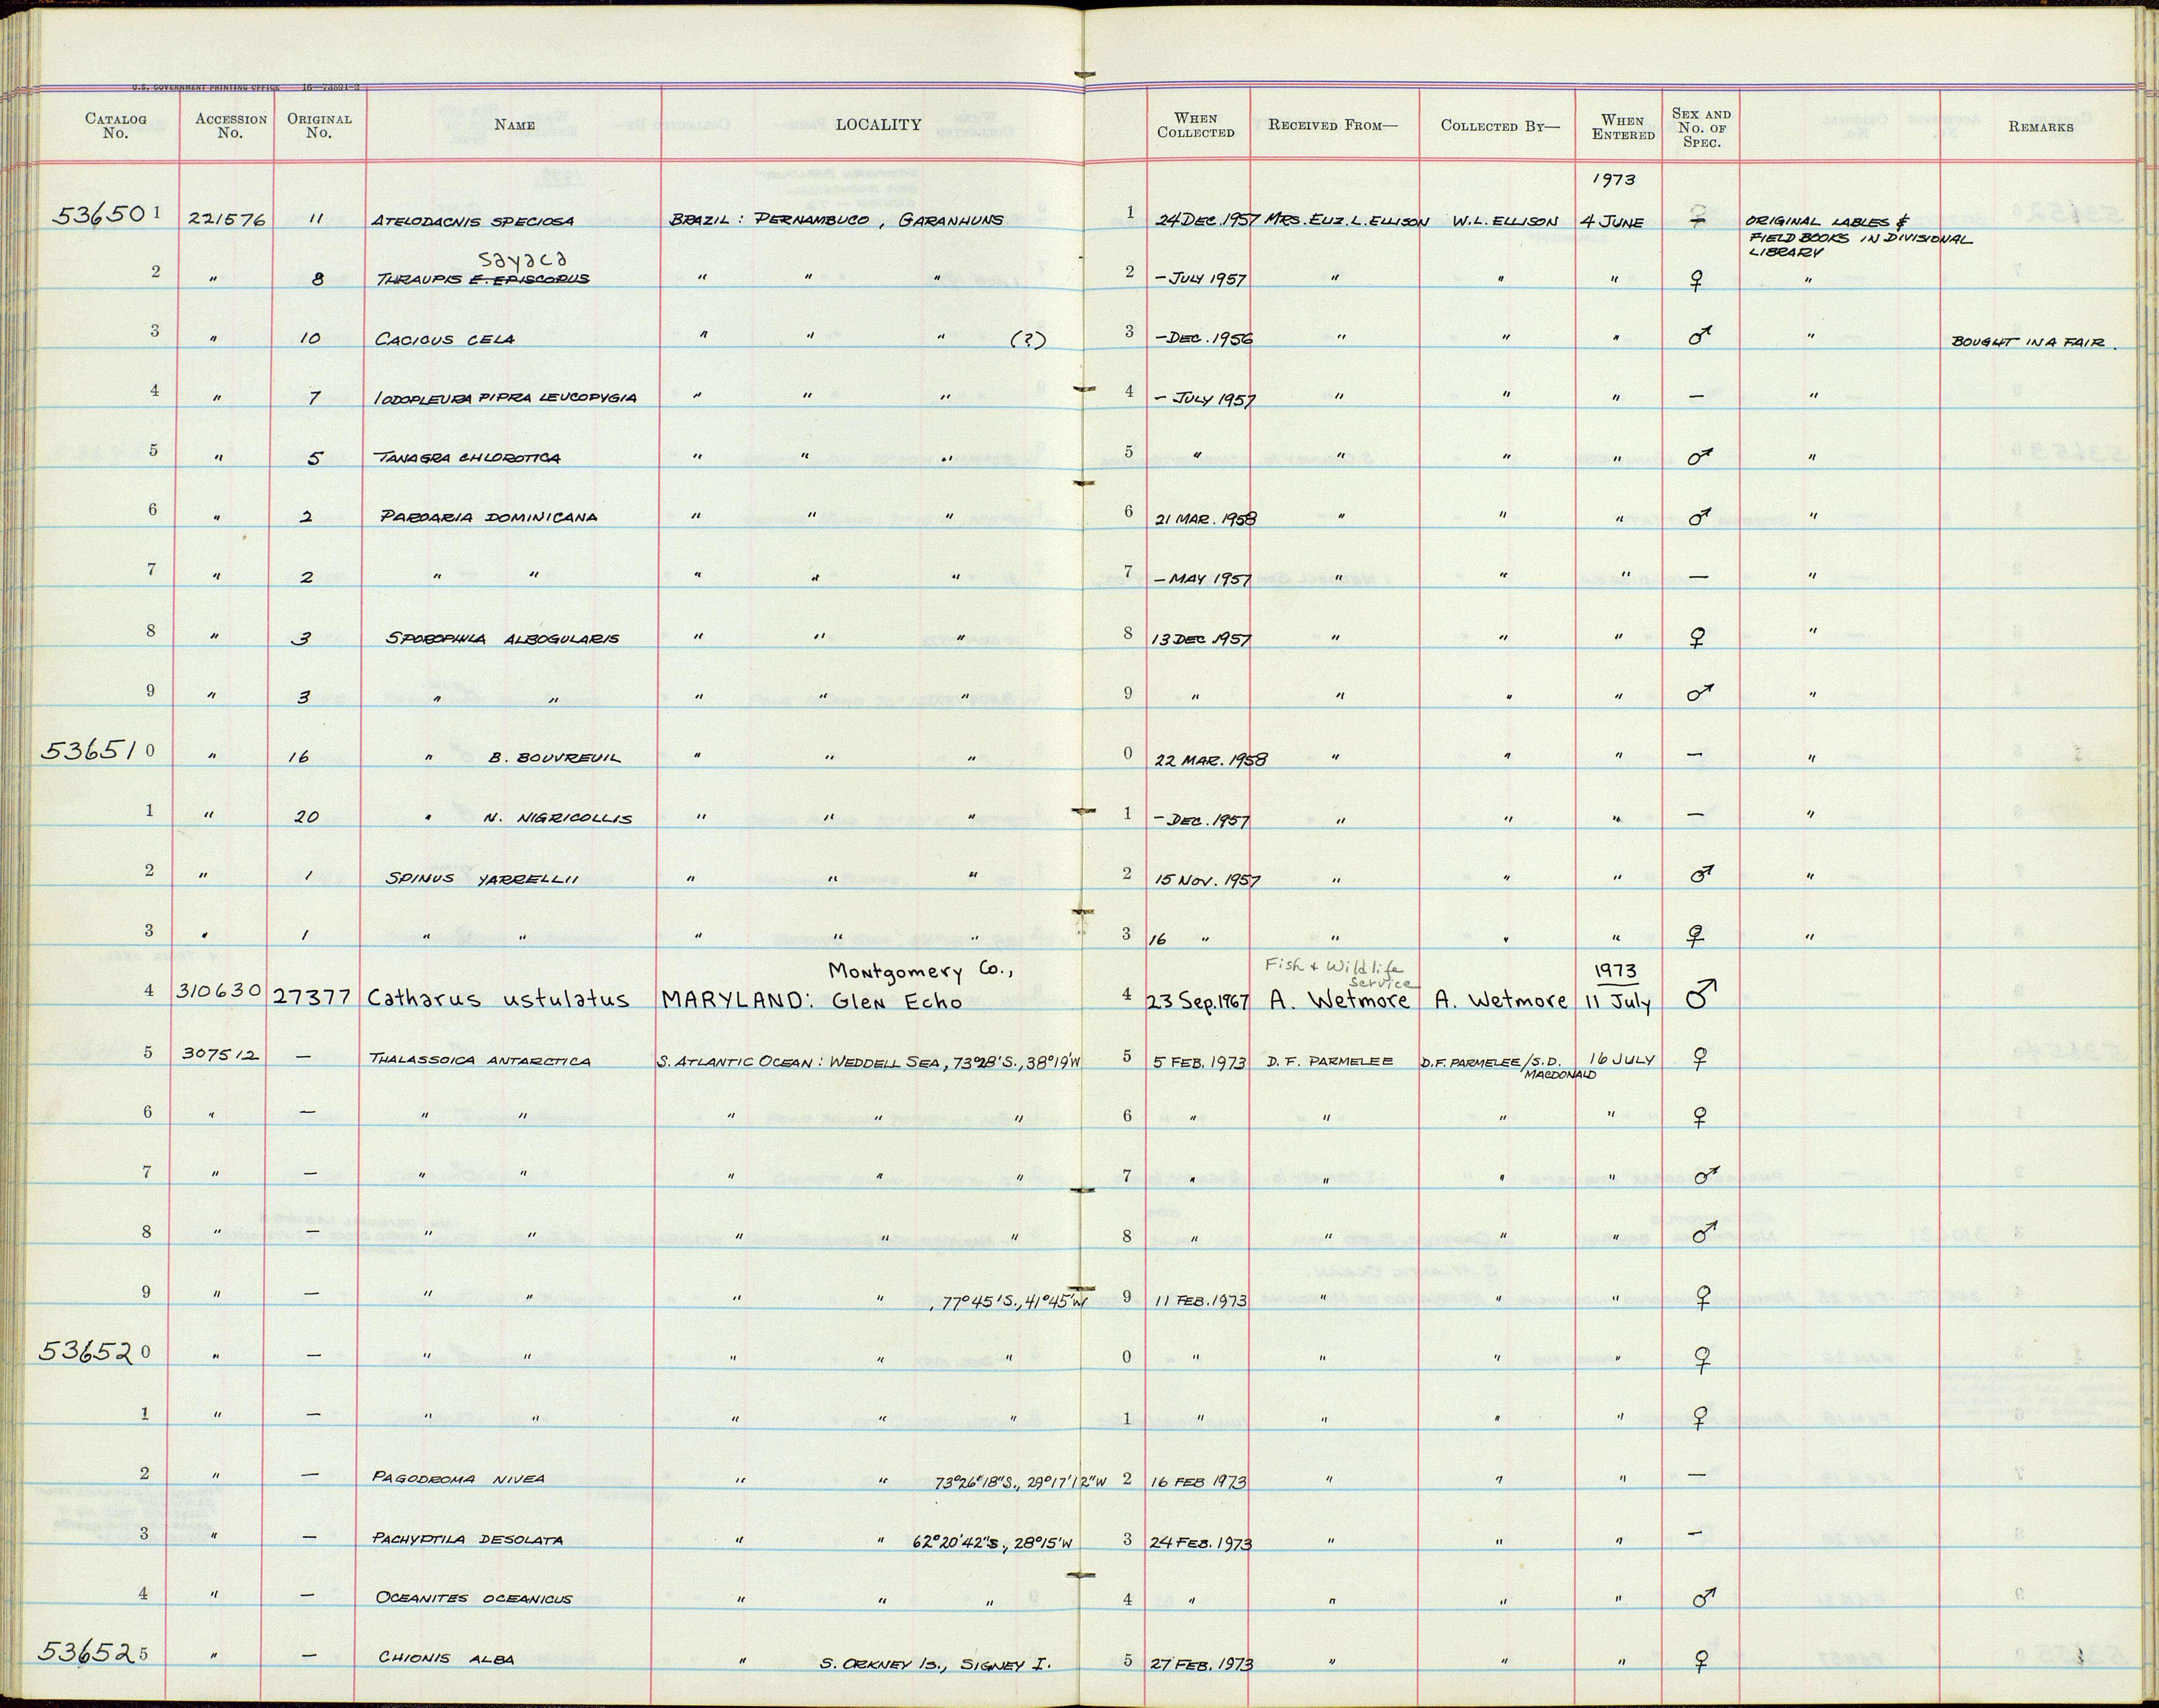 U.S. GOVERNMENT PRINTING OFFICE 16—73591-2
CATALOG No. ACCESSION No. ORIGINAL No. NAME LOCALITY WHEN COLLECTED RECEIVED FROM— COLLECTED BY— WHEN ENTERED SEX AND No. OF SPEC. REMARKS
1973
536501 221576 11 ATELODACNIS SPECIOSA BRAZIL : PERNAMBUCO , GARANHUNS 1 24 DEC. 1957 MRS. ELIZ. L. ELLISON W.L. ELLISON 4 JUNE — ORIGINAL LABLES &
FIELD BOOKS IN DIVISIONAL
LIBRARY
sayaca
2 " 8 THRAUPIS E. EPISCOPUS " " " 2 — JULY 1957 " " " ♀ "
3 " 10 CACICUS CELA " " " (?) 3 — DEC. 1956 " " " ♂ " BOUGHT IN A FAIR.
4 " 7 IODOPLEURA PIPRA LEUCOPYGIA " " " 4 — JULY 1957 " " " — "
5 " 5 TANAGRA CHLOROTICA " " " 5 " " " " ♂ "
6 " 2 PAROARIA DOMINICANA " " " 6 21 MAR. 1958 " " " ♂ "
7 " 2 " " " " " 7 — MAY 1957 " " " — "
8 " 3 SPOROPHILA ALBOGULARIS " " " 8 13 DEC 1957 " " " ♀ "
9 " 3 " " " " " 9 " " " " ♂ "
536510 " 16 " B. BOUVREUIL " " " 0 22 MAR. 1958 " " " — "
1 " 20 " N. NIGRICOLLIS " " " 1 — DEC. 1957 " " " — "
2 " 1 SPINUS YARRELLII " " " 2 15 NOV. 1957 " " " ♂ "
3 " 1 " " " " " 3 16 " " " " ♀ "
Montgomery Co., Fish & Wildlife Service 1973
4 310630 27377 Catharus ustulatus MARYLAND: Glen Echo 4 23 Sep. 1967 A. Wetmore A. Wetmore 11 July ♂
5 307512 — THALASSOICA ANTARCTICA S. ATLANTIC OCEAN : WEDDELL SEA, 73°28'S., 38°19'W 5 5 FEB. 1973 D. F. PARMELEE D.F. PARMELEE/S.D. 16 JULY ♀
MACDONALD
6 " — " " " " " 6 " " " " ♀
7 " — " " " " " 7 " " " " ♂
8 " — " " " " " 8 " " " " ♂
9 " — " " " " , 77°45'S., 41°45'W 9 11 FEB. 1973 " " " ♀
536520 " — " " " " " 0 " " " " ♀
1 " — " " " " " 1 " " " " ♀
2 " — PAGODROMA NIVEA " " 73°26'18"S., 29°17'12"W 2 16 FEB 1973 " " " —
3 " — PACHYPTILA DESOLATA " " 62°20'42"S., 28°15'W 3 24 FEB. 1973 " " " —
4 " — OCEANITES OCEANICUS " " " 4 " " " " ♂
536525 " — CHIONIS ALBA " S. ORKNEY IS., SIGNEY I. 5 27 FEB. 1973 " " " ♀